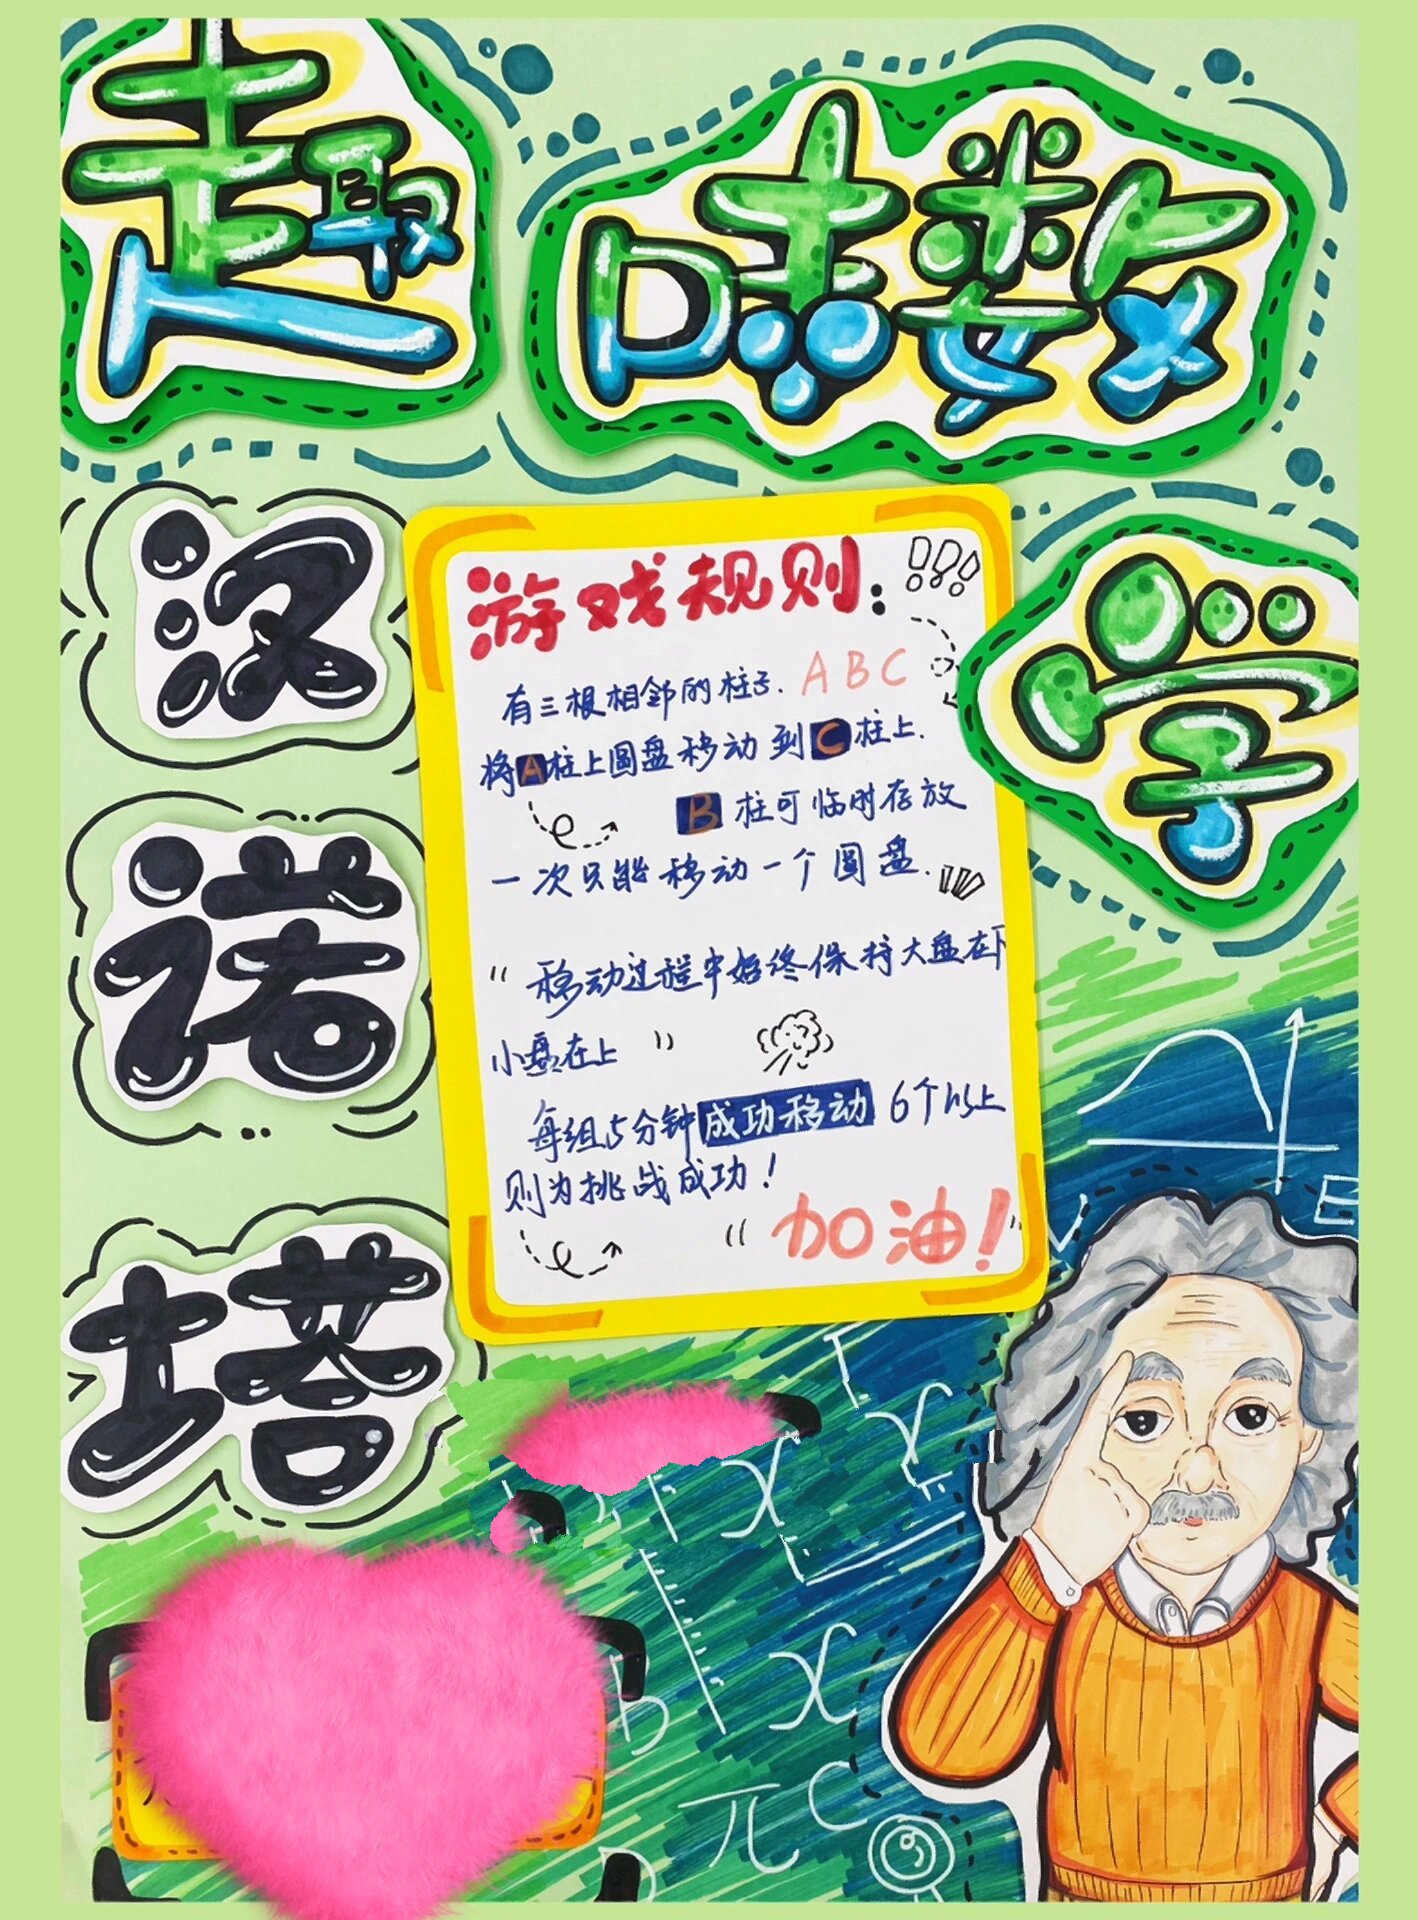 趣味数
学
汉
诺
塔
游戏规则:
有三根相邻的柱子. A B C
将A柱上圆盘移动到C柱上.
B 柱可临时存放
一次只能移动一个圆盘.
“移动过程中始终保持大盘在下
小盘在上”
每组5分钟成功移动6个以上
则为挑战成功!
“加油!”
E
x
x
x
B
π C